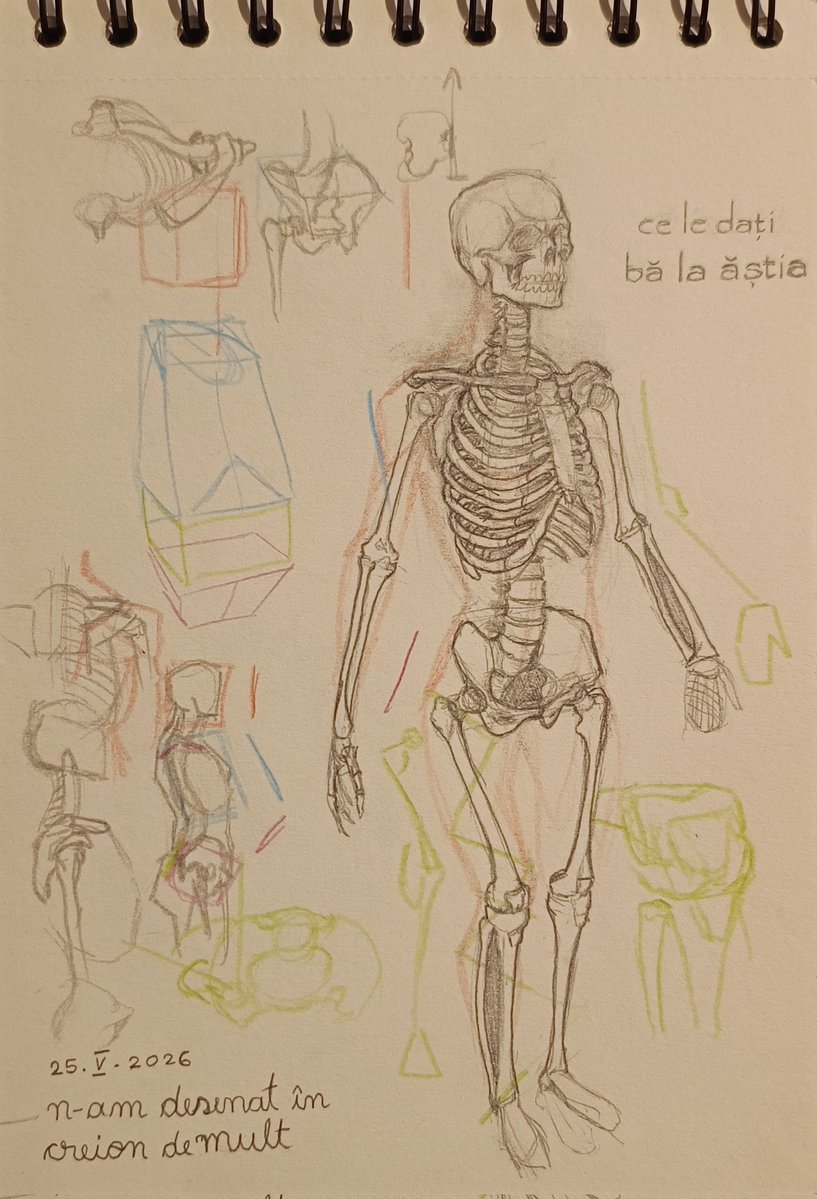 ce le dați
bă la ăștia
25.V.2026
n-am desenat în
creion demult